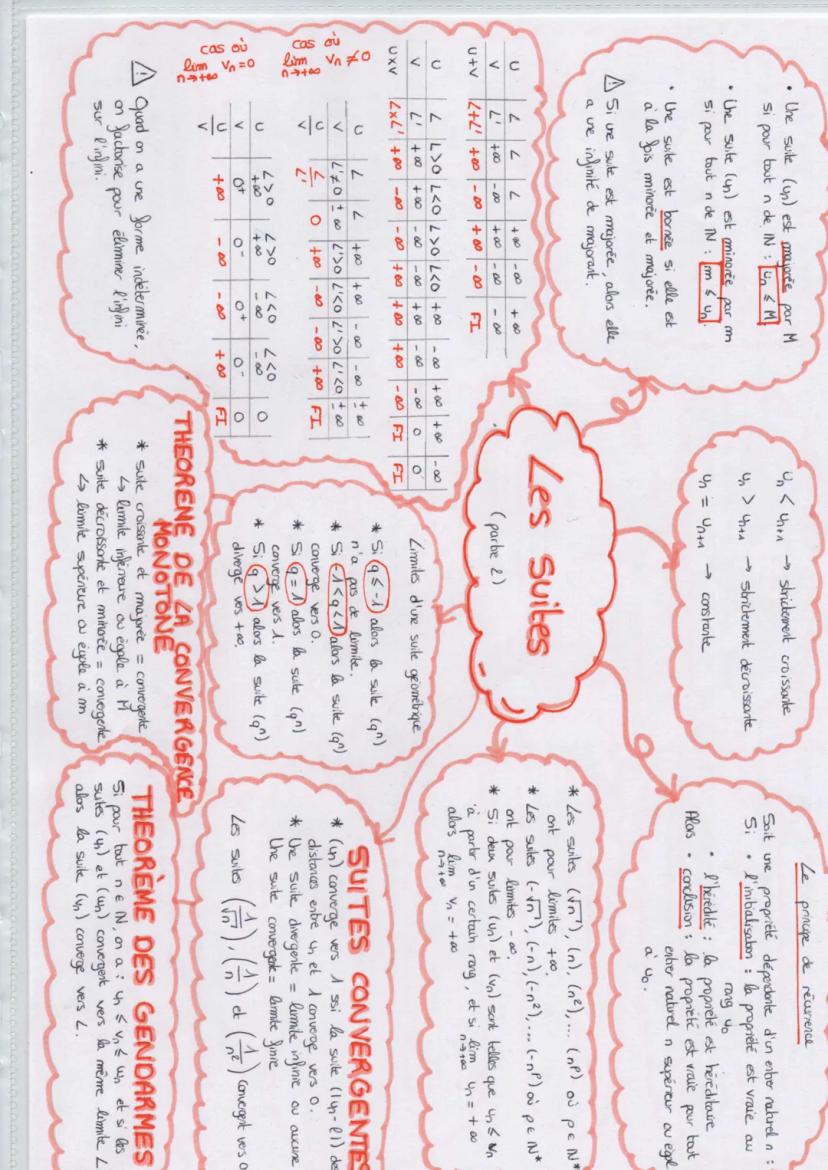 Les suites
(partie 2)
• Une suite (un) est majorée par M
si pour tout n de IN : un ≤ M
• Une suite (un) est minorée par m
si pour tout n de IN : m ≤ un.
• Une suite est bornée si elle est
à la fois minorée et majorée.
⚠ Si une suite est majorée, alors elle
a une infinité de majorant.
un < un+1 → strictement croissante
un > un+1 → strictement décroissante
un = un+1 → constante
Le principe de récurrence
Soit une propriété dépendante d'un entier naturel n :
Si • l'initialisation : la propriété est vraie au
rang u0
• l'hérédité : la propriété est héréditaire
Alors • conclusion : la propriété est vraie pour tout
entier naturel n supérieur ou égal
à u0.
U L L L +∞ -∞ +∞
V L' +∞ -∞ +∞ -∞ -∞
U+V L+L' +∞ -∞ +∞ -∞ FI
U L L>0 L<0 L>0 L<0 +∞ -∞ +∞ +∞ -∞
V L' +∞ +∞ -∞ -∞ +∞ -∞ -∞ 0 0
U×V L×L' +∞ -∞ -∞ +∞ +∞ +∞ -∞ FI FI
cas où
lim vn ≠ 0
n→+∞
U L L +∞ +∞ -∞ -∞ ±∞
V L'≠0 ±∞ L'>0 L'<0 L'>0 L'<0 ±∞
U/V L/L' 0 +∞ -∞ -∞ +∞ FI
cas où
lim vn = 0
n→+∞
U L>0 +∞ L>0 +∞ L<0 -∞ L<0 -∞ 0
V 0+ 0- 0+ 0- 0
U/V +∞ -∞ -∞ +∞ FI
⚠ Quand on a une forme indéterminée,
on factorise pour éliminer l'infini
sur l'infini.
Limites d'une suite géométrique
* Si q ≤ -1 alors la suite (qⁿ)
n'a pas de limite.
* Si -1 < q < 1 alors la suite (qⁿ)
converge vers 0.
* Si q = 1 alors la suite (qⁿ)
converge vers 1.
* Si q > 1 alors la suite (qⁿ)
diverge vers +∞.
* Les suites (√n), (n), (n²), ... (nᵖ) où p ∈ IN*
ont pour limites +∞.
* Les suites (-√n), (-n), (-n²), ... (-nᵖ) où p ∈ IN*
ont pour limites -∞.
* Si deux suites (un) et (vn) sont telles que un ≤ vn
à partir d'un certain rang, et si lim un = +∞
n→+∞
alors lim vn = +∞
n→+∞
THEOREME DE LA CONVERGENCE
MONOTONE
* suite croissante et majorée = convergente
↳ limite inférieure ou égale à M
* suite décroissante et minorée = convergente
↳ limite supérieure ou égale à m
SUITES CONVERGENTES
* (un) converge vers l ssi la suite (|un - l|) des
distances entre un et l converge vers 0.
* Une suite divergente = limite infinie ou aucune
Une suite convergente = limite finie
Les suites (1/√n), (1/n) et (1/n²) convergent vers 0
THEORÈME DES GENDARMES
Si pour tout n ∈ IN, on a : un ≤ vn ≤ wn et si les
suites (un) et (wn) convergent vers la même limite L
alors la suite (vn) converge vers L.